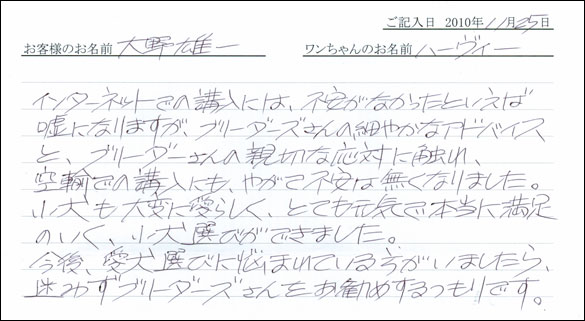 ご記入日 2010年11月25日
お客様のお名前 大野雄一 ワンちゃんのお名前 ハーヴィー
インターネットでの購入には、不安がなかったといえば
嘘になりますが、ブリーダーズさんの細やかなアドバイス
と、ブリーダーさんの親切な応対に触れ、
空輸での購入にも、やがて不安は無くなりました。
小犬も大変に愛らしく、とても元気で本当に満足
のいく、小犬選びができました。
今後、愛犬選びに悩まれている方がいましたら、
迷わずブリーダーズさんをお勧めするつもりです。